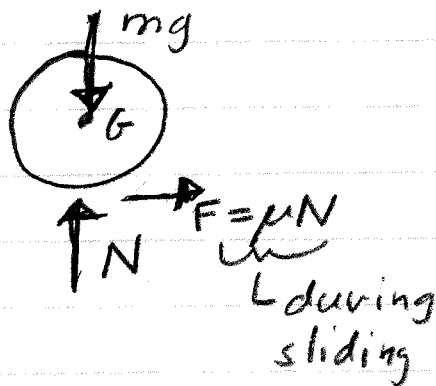 mg
G
N
F = μN
during
sliding